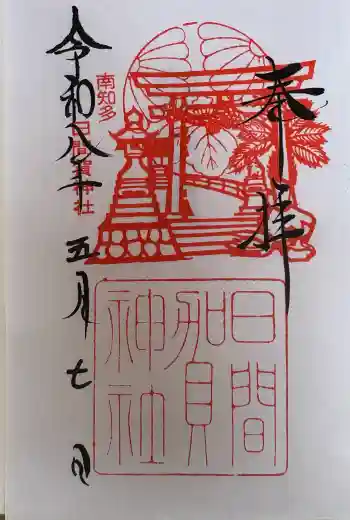 奉拝
南知多
日間賀神社
令和八年五月七日
日間
賀
神社